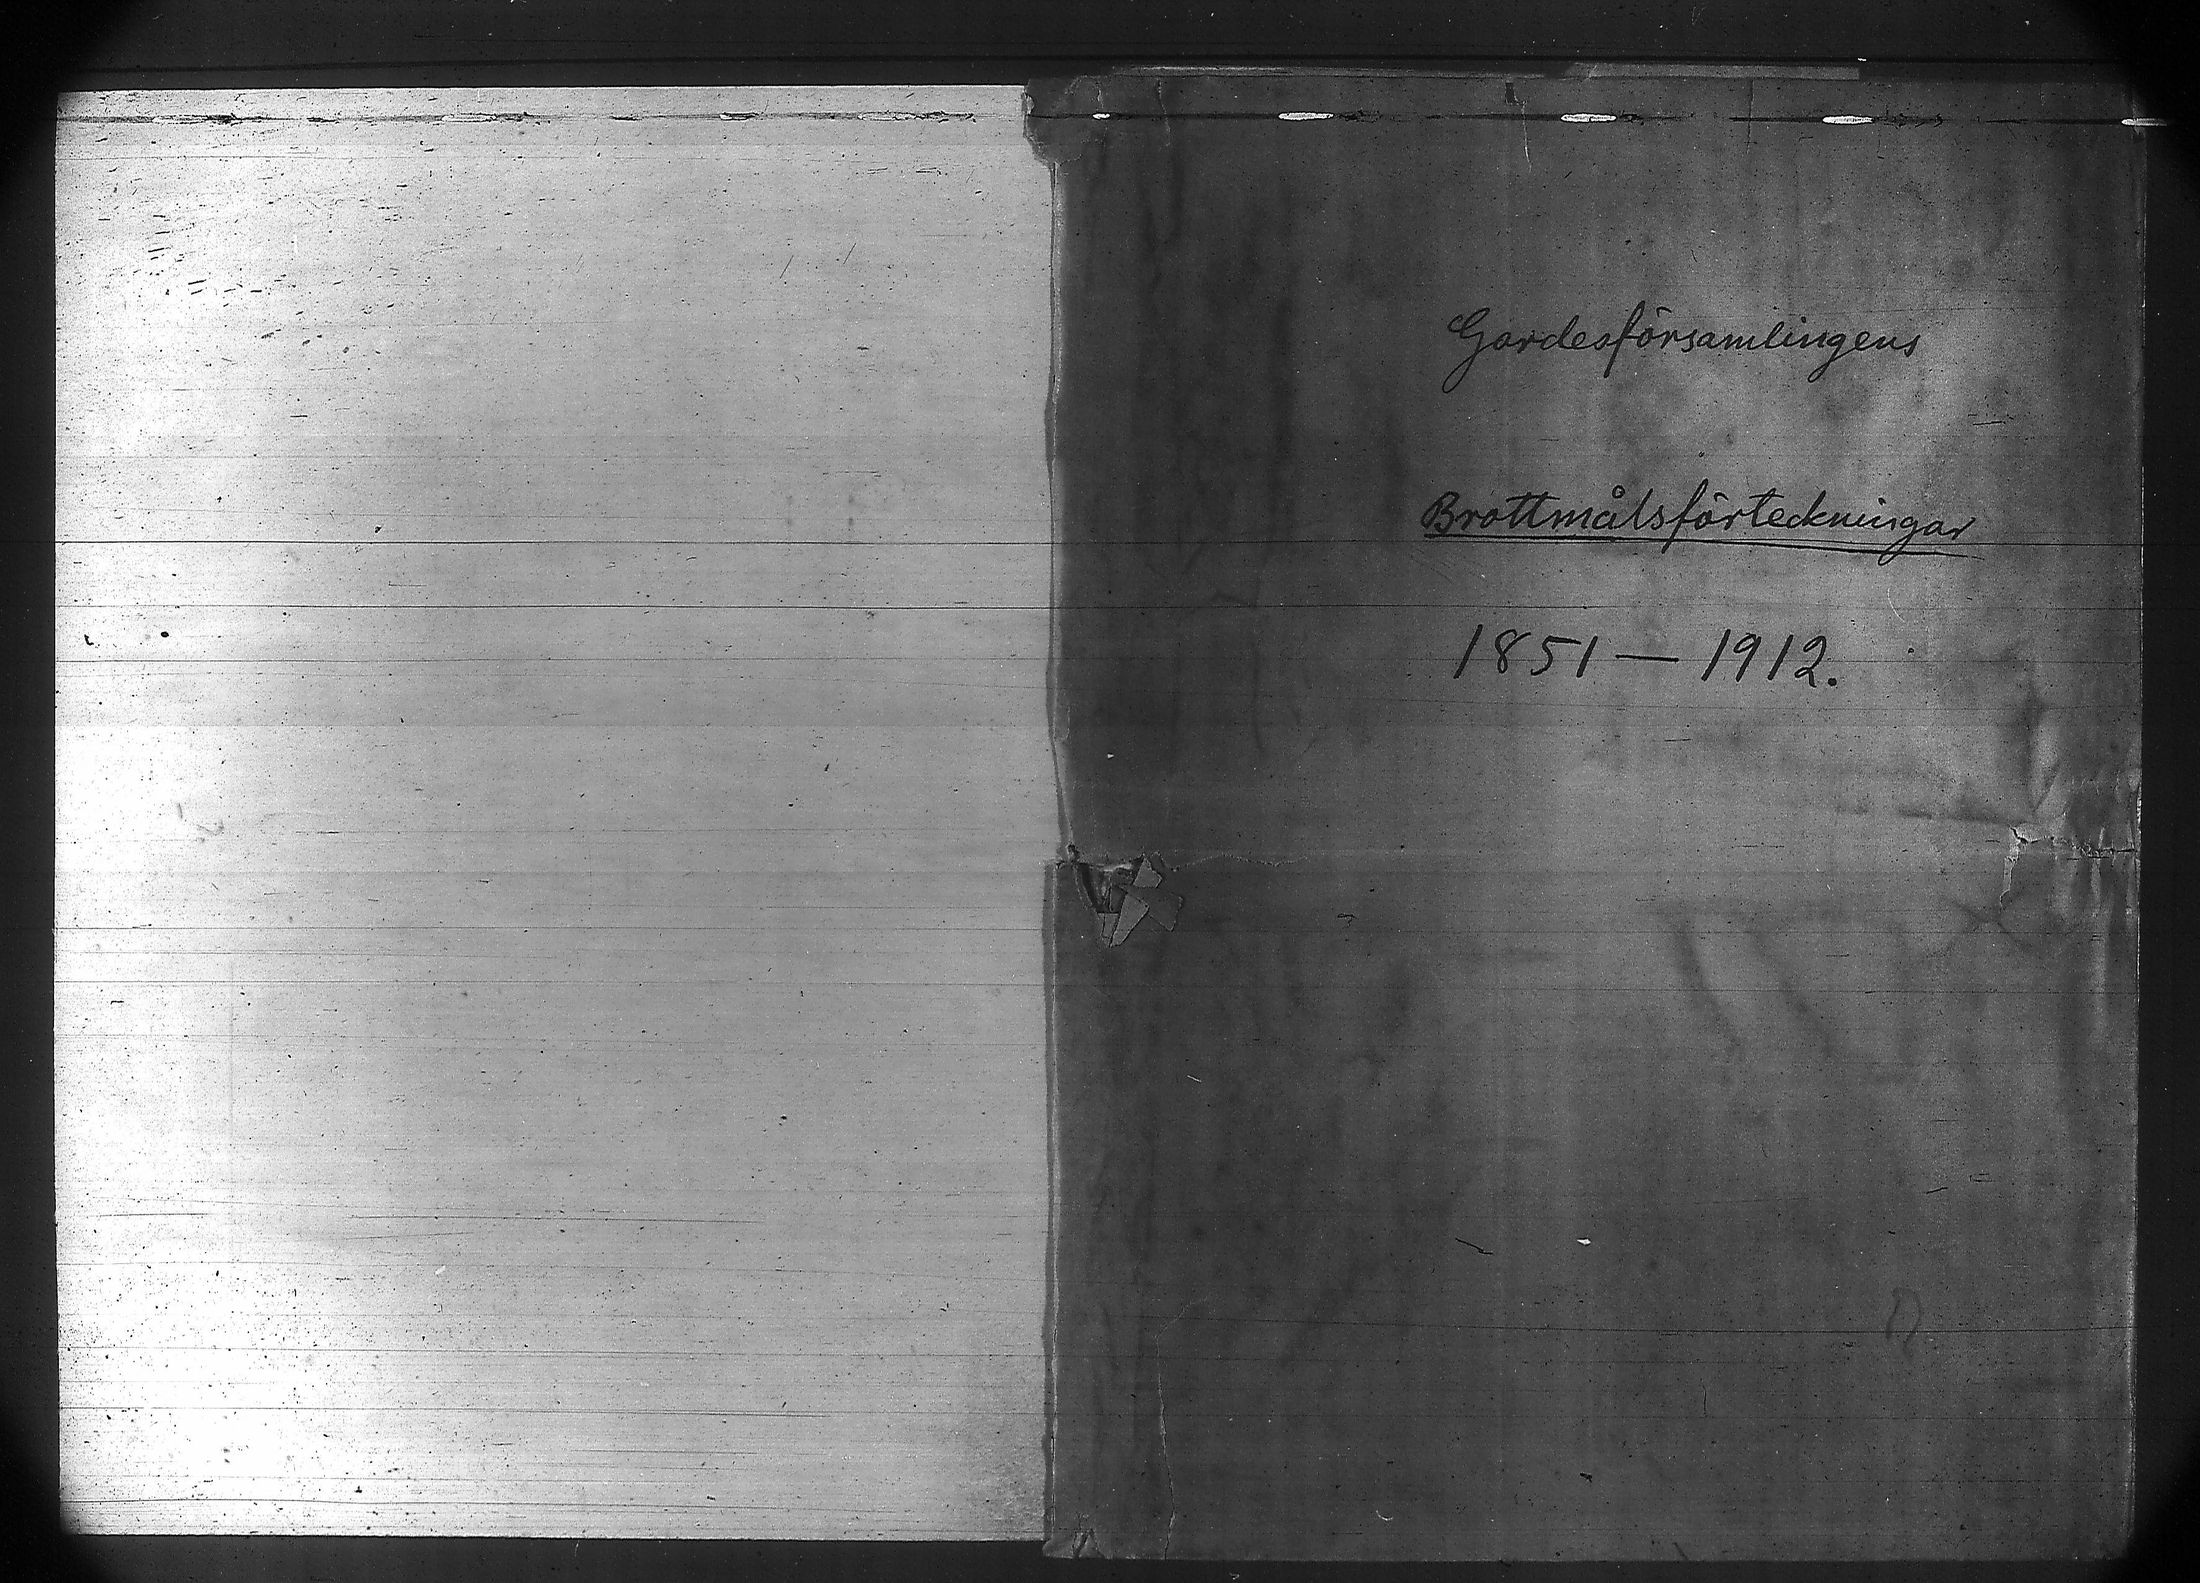 Gardesförsamlingens
Brottmålsförteckningar
1851 — 1912.